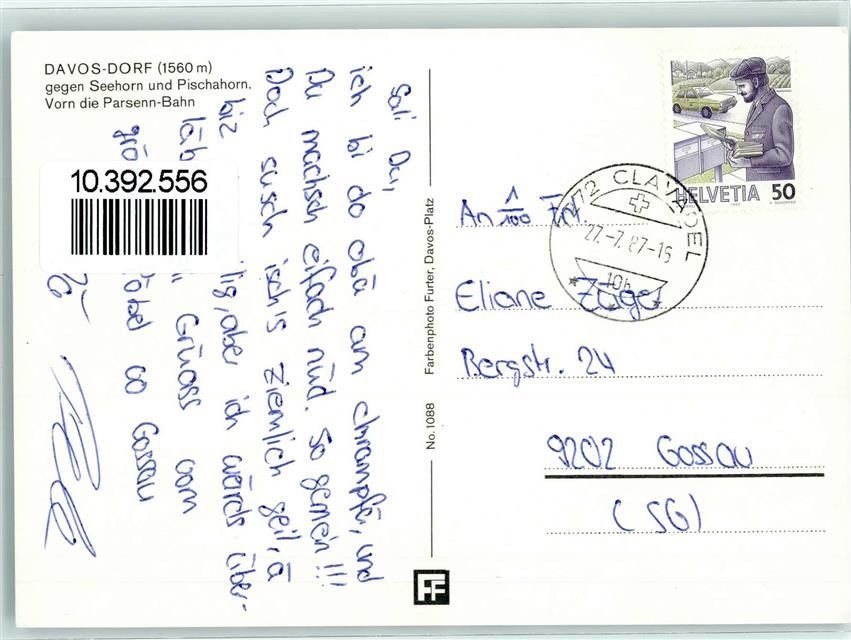 DAVOS-DORF (1560 m)
gegen Seehorn und Pischahorn.
Vorn die Parsenn-Bahn
10.392.556
Sali Du,
ich bi do obä am chrampfä, und
Du machsch eifach nüd. So gemein !!!
Doch susch isch's ziemlich geil, ä
biz lig, aber ich würds über-
läb Grüass vom
grö co Gossau
No. 1088 Farbenphoto Furter, Davos-Platz
FF
HELVETIA 50
7272 CLAVADEL
27.-7.87-16
An 1/100 Fpf.
Eliane Züger
Bergstr. 24
9202 Gossau
(SG)